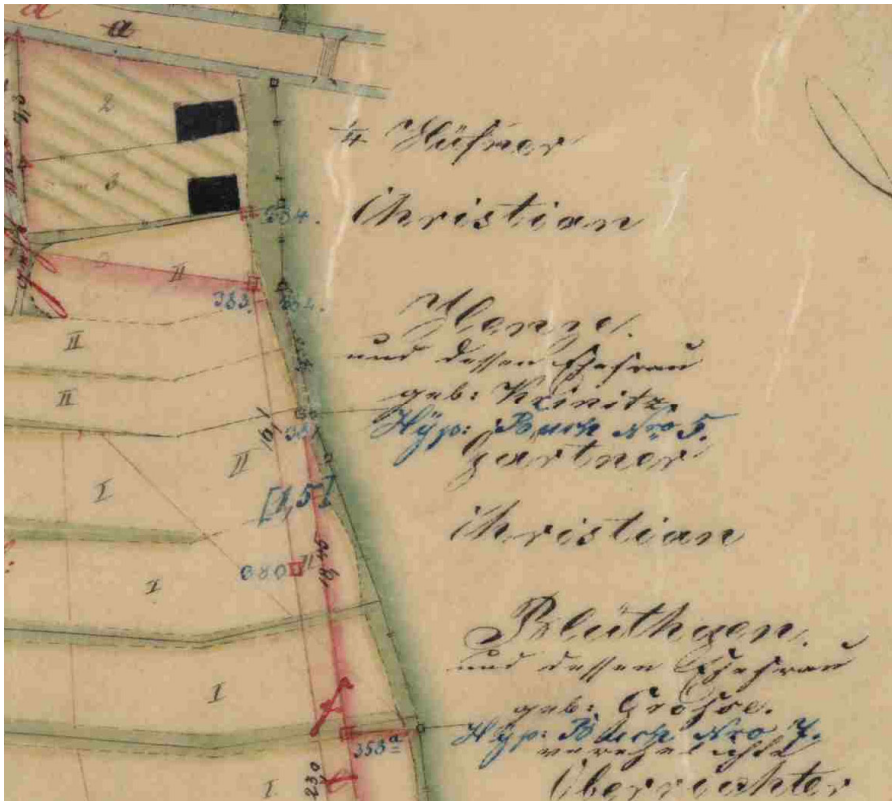 a
2
3
334.
II
333.
332.
II
II
II
10,1
[1,5]
I
I
380
I
I
353a
230
¼ Hüfner
Christian
Henze.
und dessen Ehefrau
geb: Krinitz.
Hyp: Buch Nro 5.
gärtner
Christian
Blüthgen.
und dessen Ehefrau
geb: Grohse.
Hyp: Buch Nro 7.
verehelichte
Oberrichter